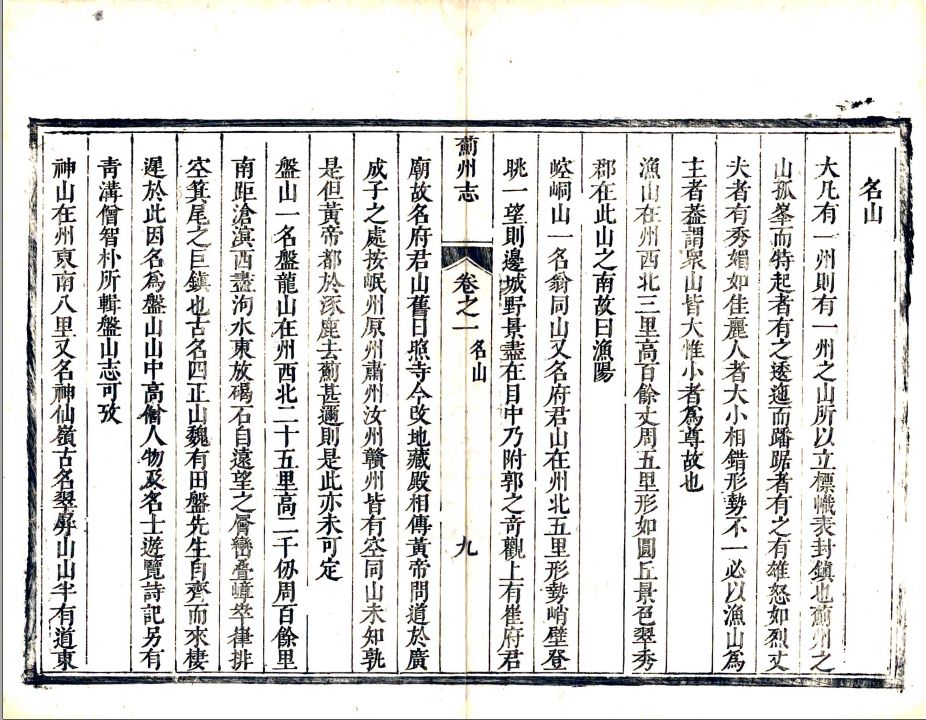 名山
大凡有一州則有一州之山所以立標幟表封鎮也薊州之
山孤峯而特起者有之逶迤而蹯踞者有之有雄怒如烈丈
夫者有秀媚如佳麗人者大小相錯形勢不一必以漁山爲
主者葢謂衆山皆大惟小者爲尊故也
漁山在州西北三里高百餘丈周五里形如圓丘景色翠秀
郡在此山之南故曰漁陽
崆峒山一名翁同山又名府君山在州北五里形勢峭壁登
眺一望則邊城野景盡在目中乃附郭之竒觀上有崔府君
薊州志
卷之一 名山
九
廟故名府君山舊曰照寺今攺地藏殿相傳黃帝問道於廣
成子之處按岷州原州肅州汝州贛州皆有空同山未知孰
是但黃帝都於涿鹿去薊甚邇則是此亦未可定
盤山一名盤龍山在州西北二十五里高二千仞周百餘里
南距滄溟西盡泃水東放碣石自遠望之層巒疊嶂崒嵂排
空箕尾之巨鎮也古名四正山魏有田盤先生自齊而來棲
遲於此因名爲盤山山中高僧人物及名士遊覽詩記另有
靑溝僧智朴所輯盤山志可攷
神山在州東南八里又名神仙嶺古名翠屛山山半有道東